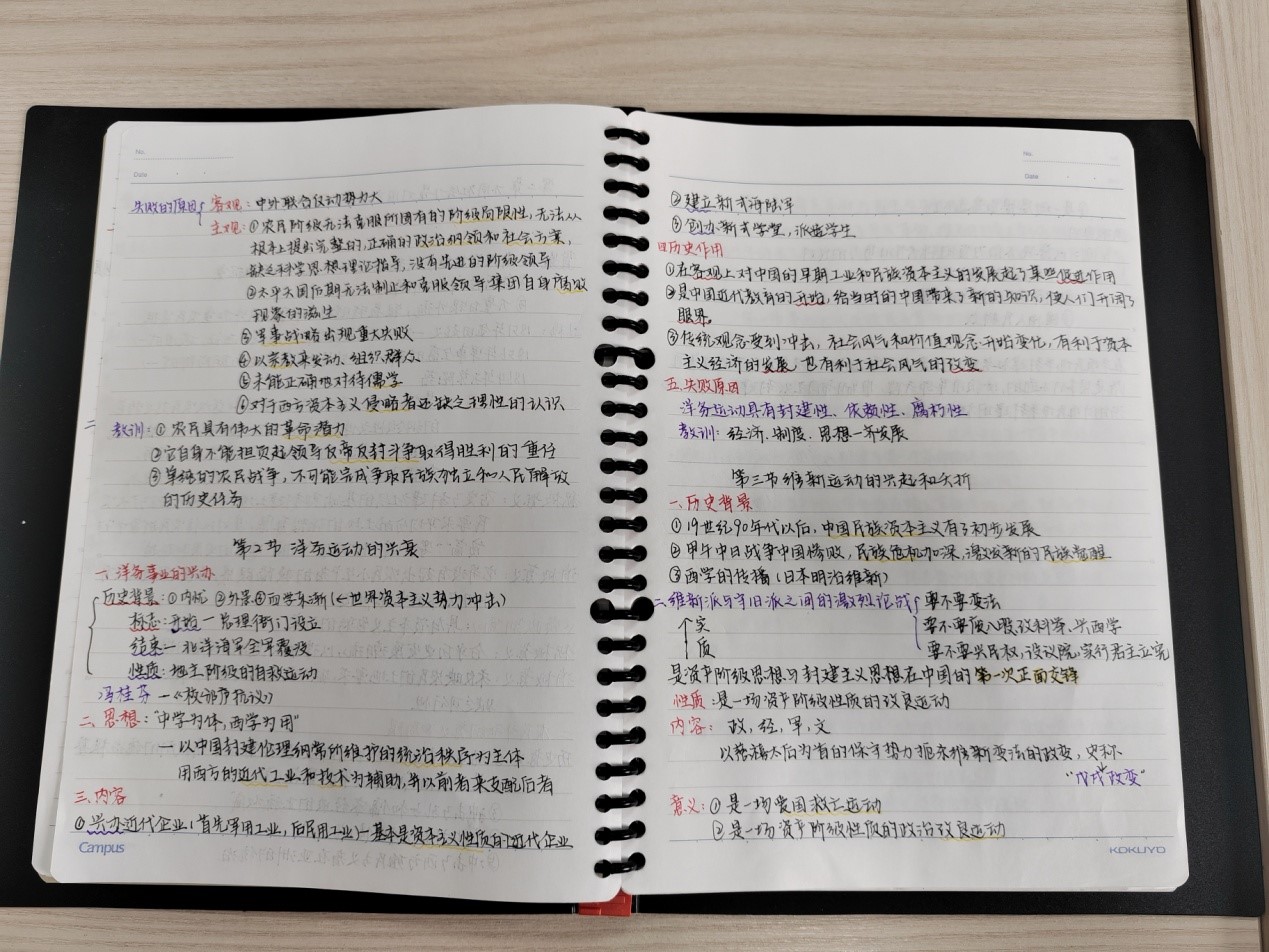 No.
Date
失败的原因 客观：中外联合反动势力大
主观：①农民阶级无法克服所固有的阶级局限性，无法从
根本上提出完整的，正确的政治纲领和社会方案，
缺乏科学思想理论指导，没有先进的阶级领导
②太平天国后期无法制止和克服领导集团自身腐败
现象的滋生
③军事战略出现重大失败
④以宗教来发动、组织群众
⑤未能正确地对待儒学
⑥对于西方资本主义侵略者还缺乏理性的认识
二 教训：①农民具有伟大的革命潜力
②它自身不能担负起领导反帝反封斗争取得胜利的重任
③单纯的农民战争，不可能完成争取民族独立和人民解放
的历史任务
第2节 洋务运动的兴衰
一、洋务事业的兴办
历史背景：①内忧 ②外患 ③西学东渐(←世界资本主义势力冲击)
标志：开始—总理衙门设立
结束—北洋海军全军覆没
性质：地主阶级的自救运动
冯桂芬—《校邠庐抗议》
二、思想："中学为体，西学为用"
—以中国封建伦理纲常所维护的统治秩序为主体
用西方的近代工业和技术为辅助，并以前者来支配后者
三、内容
①兴办近代企业(首先军用工业，后民用工业)—基本是资本主义性质的近代企业
Campus
No.
Date
②建立新式海陆军
③创办新式学堂，派遣学生
四历史作用
①在客观上对中国的早期工业和民族资本主义的发展起了某些促进作用
②是中国近代教育的开始，给当时的中国带来了新的知识，使人们开阔了
眼界。
③传统观念受到冲击，社会风气和价值观念开始变化，有利于资本
主义经济的发展，也有利于社会风气的改变
五、失败原因
洋务运动具有封建性、依赖性、腐朽性
教训：经济、制度、思想一齐发展
第三节维新运动的兴起和夭折
一、历史背景
①19世纪90年代以后，中国民族资本主义有了初步发展
②甲午中日战争中国惨败，民族危机加深，激发新的民族觉醒
③西学的传播(日本明治维新)
二、维新派与守旧派之间的激烈论战 要不要变法
↑实 要不要废八股，改科学、兴西学
质 要不要兴民权，设议院，实行君主立宪
是资产阶级思想与封建主义思想在中国的第一次正面交锋
性质：是一场资产阶级性质的改良运动
内容：政，经，军，文
以慈禧太后为首的保守势力扼杀维新变法的政变，史称
"戊戌政变"
意义：①是一场爱国救亡运动
②是一场资产阶级性质的政治改良运动
KOKUYO